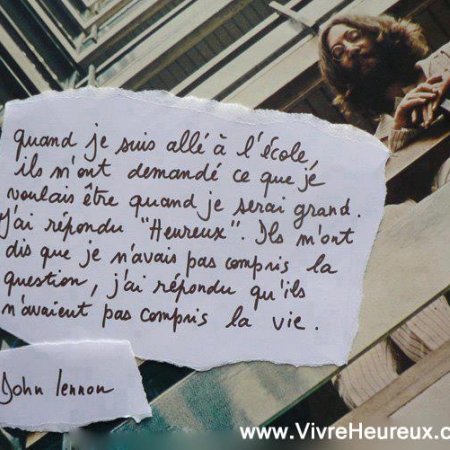 quand je suis allé à l'école,
ils m'ont demandé ce que je
voulais être quand je serai grand.
J'ai répondu "Heureux". Ils m'ont
dis que je n'avais pas compris la
question, j'ai répondu qu'ils
n'avaient pas compris la vie.
John lennon
www.VivreHeureux.c